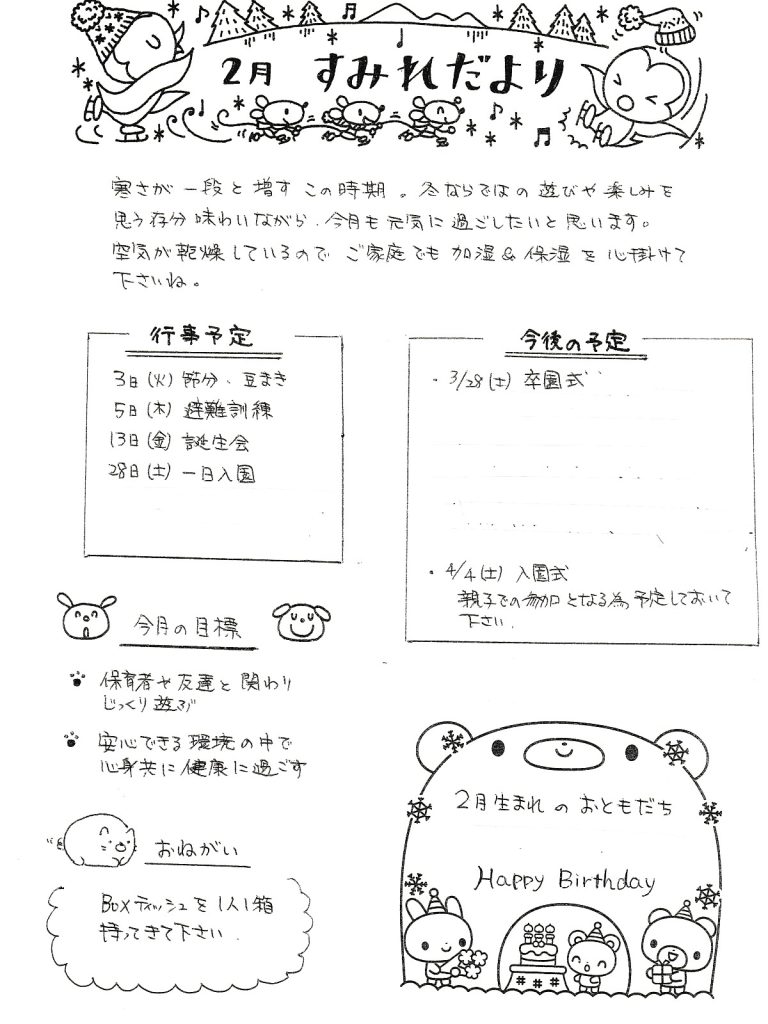 2月 すみれだより
寒さが一段と増すこの時期。冬ならではの遊びや楽しみを
思う存分味わいながら、今月も元気に過ごしたいと思います。
空気が乾燥しているのでご家庭でも加湿&保湿を心掛けて
下さいね。
行事予定
3日(火) 節分、豆まき
5日(木) 避難訓練
13日(金) 誕生会
28日(土) 一日入園
今後の予定
・3/28(土) 卒園式
・4/4(土) 入園式
親子での参加となる為予定しておいて
下さい.
今月の目標
保育者や友達と関わり
じっくり遊ぶ
安心できる環境の中で
心身共に健康に過ごす
おねがい
Boxティッシュを1人1箱
持ってきて下さい.
2月生まれのおともだち
Happy Birthday